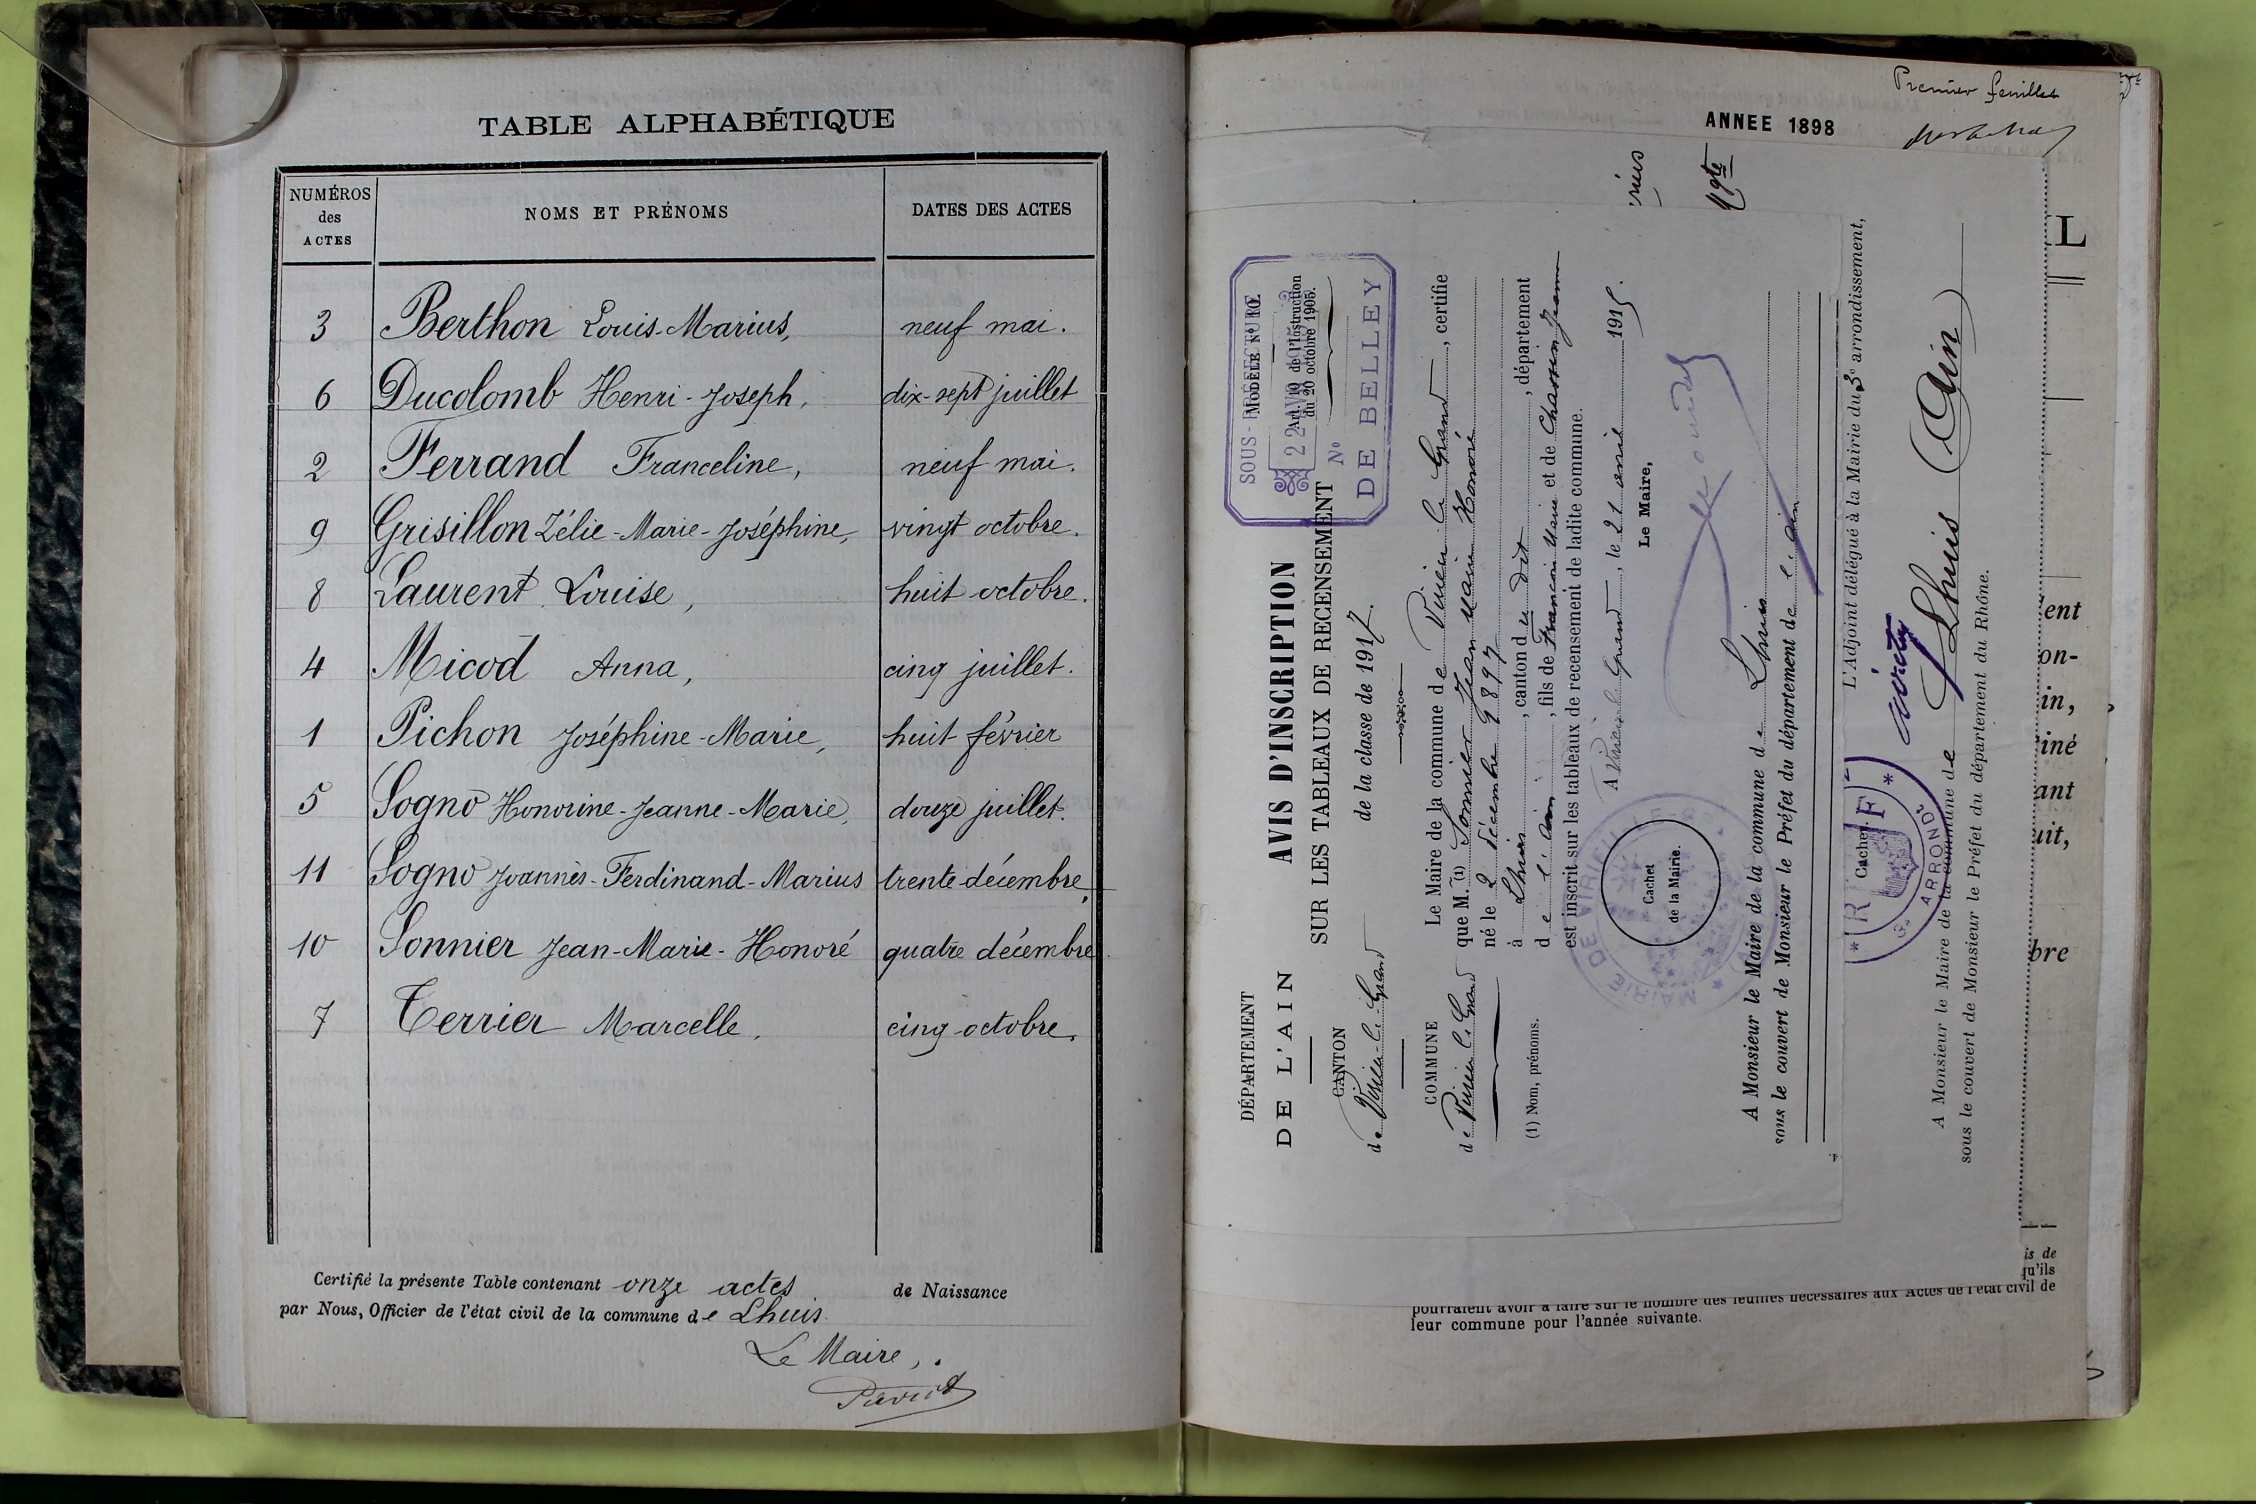 TABLE ALPHABÉTIQUE
NUMÉROS des ACTES NOMS ET PRÉNOMS DATES DES ACTES
3 Berthon Louis-Marius, neuf mai.
6 Ducolomb Henri-Joseph, dix-sept juillet
2 Ferrand Franceline, neuf mai.
9 Grisillon Zélie-Marie-Joséphine, vingt octobre.
8 Laurent Louise, huit octobre.
4 Micod Anna, cinq juillet.
1 Pichon Joséphine-Marie, huit février
5 Sogno Honorine-Jeanne-Marie, douze juillet.
11 Sogno Joannès-Ferdinand-Marius trente décembre,
10 Sonnier Jean-Marie-Honoré quatre décembre.
7 Terrier Marcelle, cinq octobre.
Certifié la présente Table contenant onze actes de Naissance
par Nous, Officier de l'état civil de la commune de Lhuis.
Le Maire,
Premier feuillet
ANNEE 1898
DÉPARTEMENT
DE L'AIN
CANTON
de Virieu-le-Grand
COMMUNE
de Virieu le Grand
(1) Nom, prénoms.
SOUS-PRÉFECTURE
22 AVR
N°
DE BELLEY
Art. 10 de l'Instruction
du 20 octobre 1905.
AVIS D'INSCRIPTION
SUR LES TABLEAUX DE RECENSEMENT
de la classe de 1917.
Le Maire de la commune de Virieu le Grand, certifie
que M. (1) Sonnier Jean Marie Honoré
né le 2 décembre 1897
à Lhuis, canton du dit, département
de l'ain, fils de François Marie et de
est inscrit sur les tableaux de recensement de ladite commune.
A Virieu le Grand, le 21 avril 1915.
Le Maire,
Cachet
de la Mairie.
MAIRIE DE VIRIEU LE GRAND
A Monsieur le Maire de la commune de Lhuis
sous le couvert de Monsieur le Préfet du département de l'ain
L'Adjoint délégué à la Mairie du 3e arrondissement,
Cachet
RF
ARRONDt
A Monsieur le Maire de la commune de Lhuis (Ain)
sous le couvert de Monsieur le Préfet du département du Rhône.
L
ent
on-
in,
iné
ant
uit,
bre
is de
qu'ils
pourraient avoir à faire sur le nombre des feuilles nécessaires aux Actes de l'état civil de
leur commune pour l'année suivante.